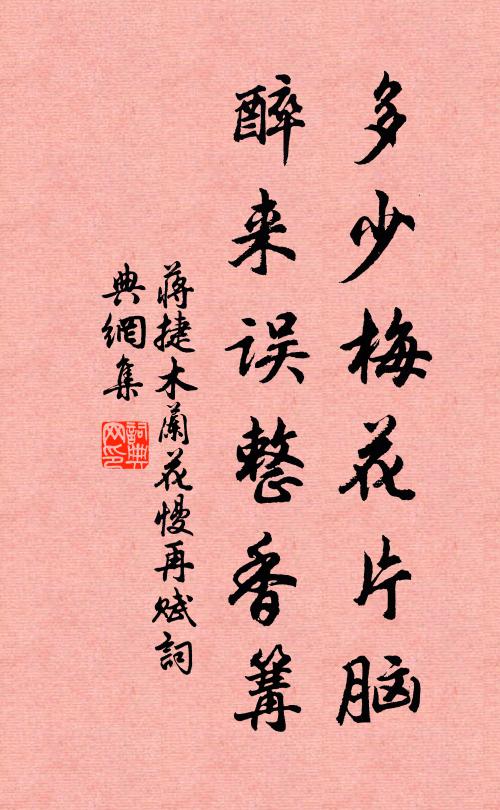 多少梅花片脑
醉来误整香篝
蒋捷木蘭花慢再赋詞
典網集
詞典网印